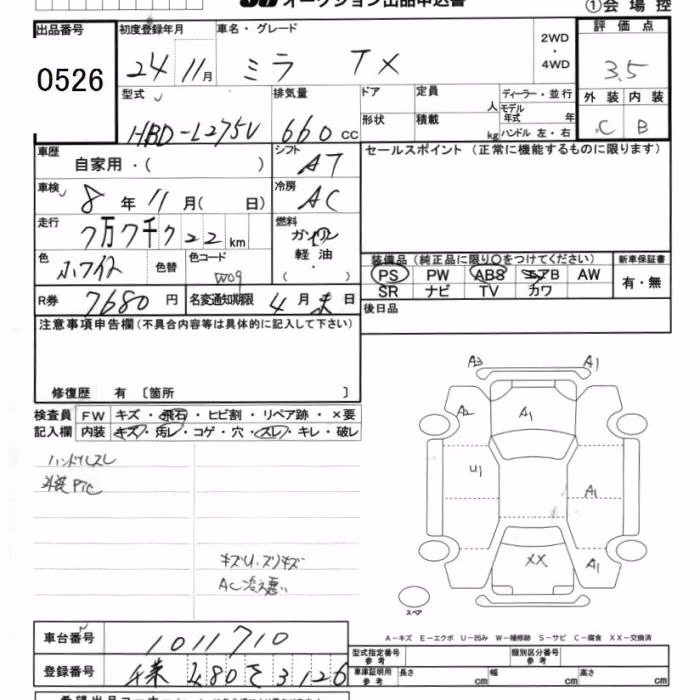 オークション出品申込書
①会場控
出品番号
0526
初度登録年月
24 11月
車名・グレード
ミラ TX
2WD
・
4WD
評価点
3.5
外装 内装
C B
型式
HBD-L275V
排気量
660 cc
ドア
形状
定員
人
積載
kg
ディーラー・並行
モデル年式 年
ハンドル 左・右
車歴
自家用・( )
シフト
AT
セールスポイント (正常に機能するものに限ります)
車検
8年 11月( 日)
冷房
AC
走行
7万7千 22 km
燃料
ガソリン
軽油
( ・ )
色
ホワイト
色替
色コード
W09
装備品 (純正品に限り○をつけてください)
新車保証書
PS PW ABS エアB AW
SR ナビ TV カワ
有・無
R券
7680 円
名変通知期限
4月末日
後日品
注意事項申告欄(不具合内容等は具体的に記入して下さい)
修復歴 有 〔箇所 〕
検査員
記入欄
FW キズ・飛石・ヒビ割・リペア跡・×要
内装 キズ・汚レ・コゲ・穴・スレ・キレ・破レ
ハンドルスレ
外装PTC
キズU・スリキズ
AC冷え悪い
A3 A1
A2 A1
U1 A1
XX A1
スペア
A-キズ E-エクボ U-凹み W-補修跡 S-サビ C-腐食 XX-交換済
車台番号
1011710
登録番号
480 さ 3126
型式指定番号
参考
類別区分番号
参考
車庫証明用
参考
長さ cm
幅 cm
高さ cm